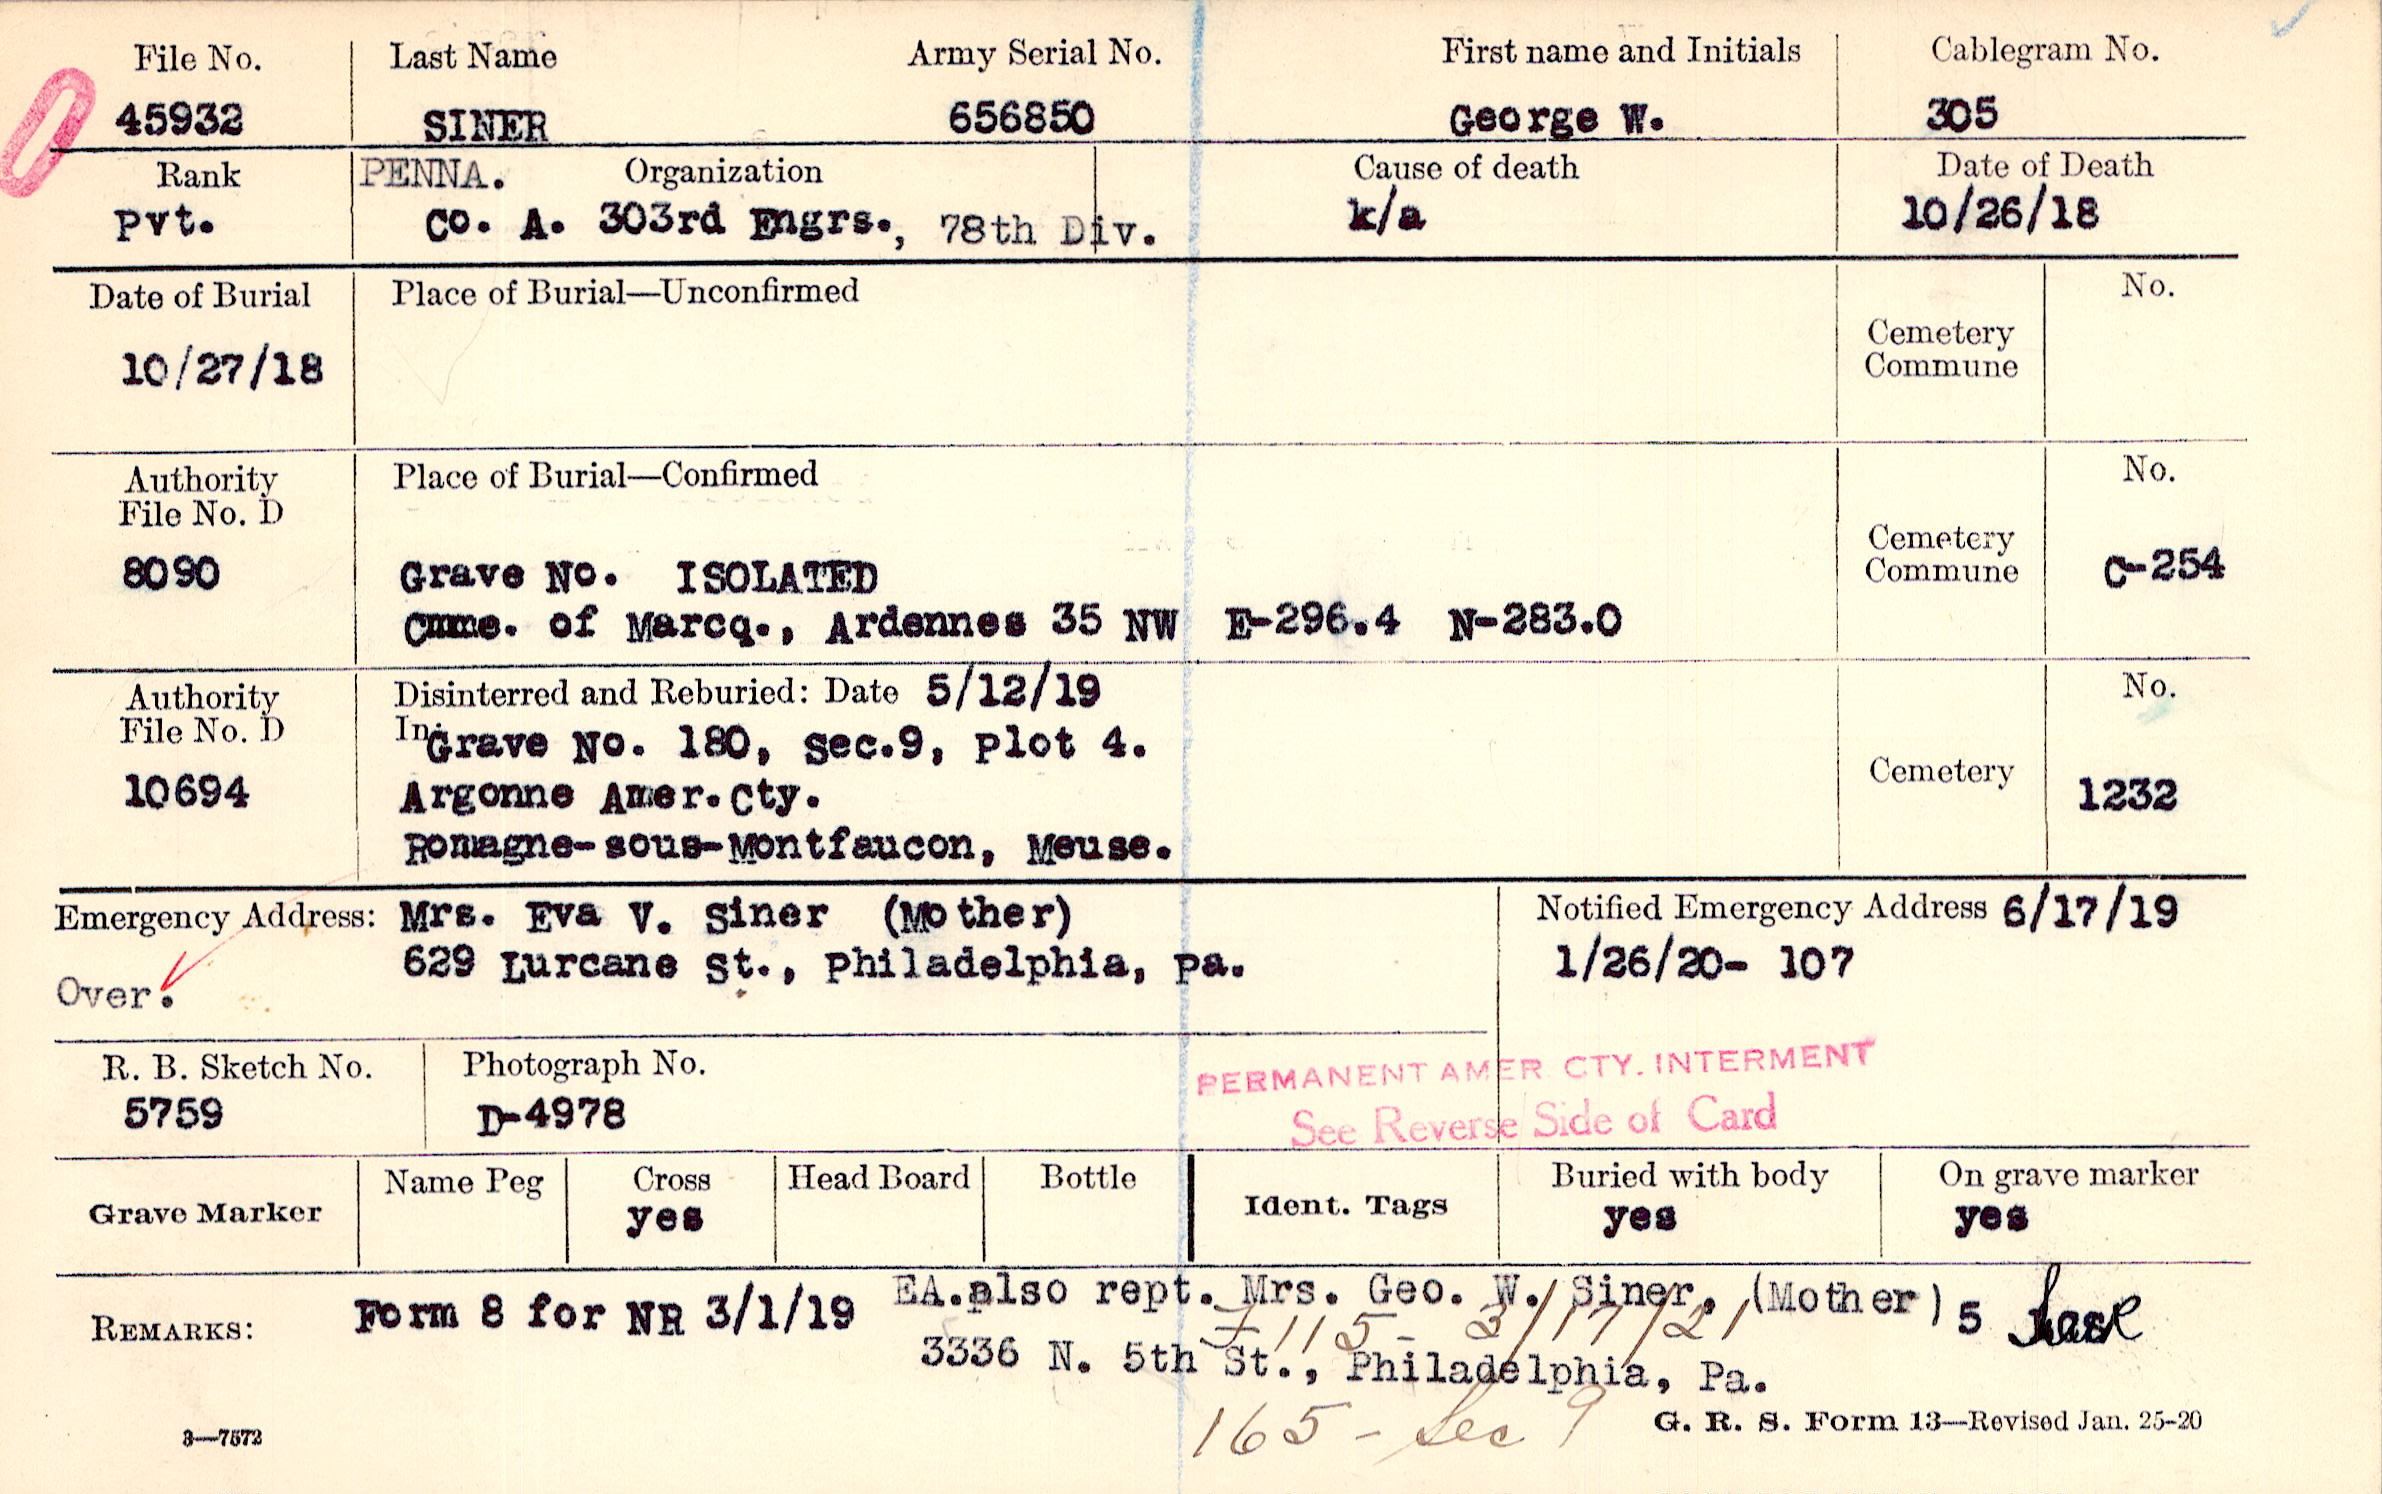 File No. Last Name Army Serial No. First name and Initials Cablegram No.
45932 SINER 656850 George W. 305
Rank PENNA. Organization Cause of death Date of Death
Pvt. Co. A. 303rd Engrs., 78th Div. k/a 10/26/18
Date of Burial Place of Burial—Unconfirmed No.
Cemetery
Commune
10/27/18
Authority Place of Burial—Confirmed No.
File No. D
Cemetery
8090 Grave No. ISOLATED Commune C-254
Cmme. of Marcq., Ardennes 35 NW E-296.4 N-283.0
Authority Disinterred and Reburied: Date 5/12/19 No.
File No. D In Grave No. 180, Sec.9, Plot 4.
10694 Argonne Amer.Cty. Cemetery 1232
Romagne-sous-Montfaucon, Meuse.
Emergency Address: Mrs. Eva V. Siner (Mother) Notified Emergency Address 6/17/19
629 Lurcane St., Philadelphia, Pa. 1/26/20- 107
Over.
R. B. Sketch No. Photograph No. PERMANENT AMER. CTY. INTERMENT
5759 D-4978 See Reverse Side of Card
Grave Marker Name Peg Cross Head Board Bottle Ident. Tags Buried with body On grave marker
yes yes yes
REMARKS: Form 8 for NR 3/1/19 EA.also rept. Mrs. Geo. W. Siner, (Mother) 5
115- 3/17/21
3336 N. 5th St., Philadelphia, Pa.
165 - Sec 9
3—7572 G. R. S. Form 13—Revised Jan. 25-20